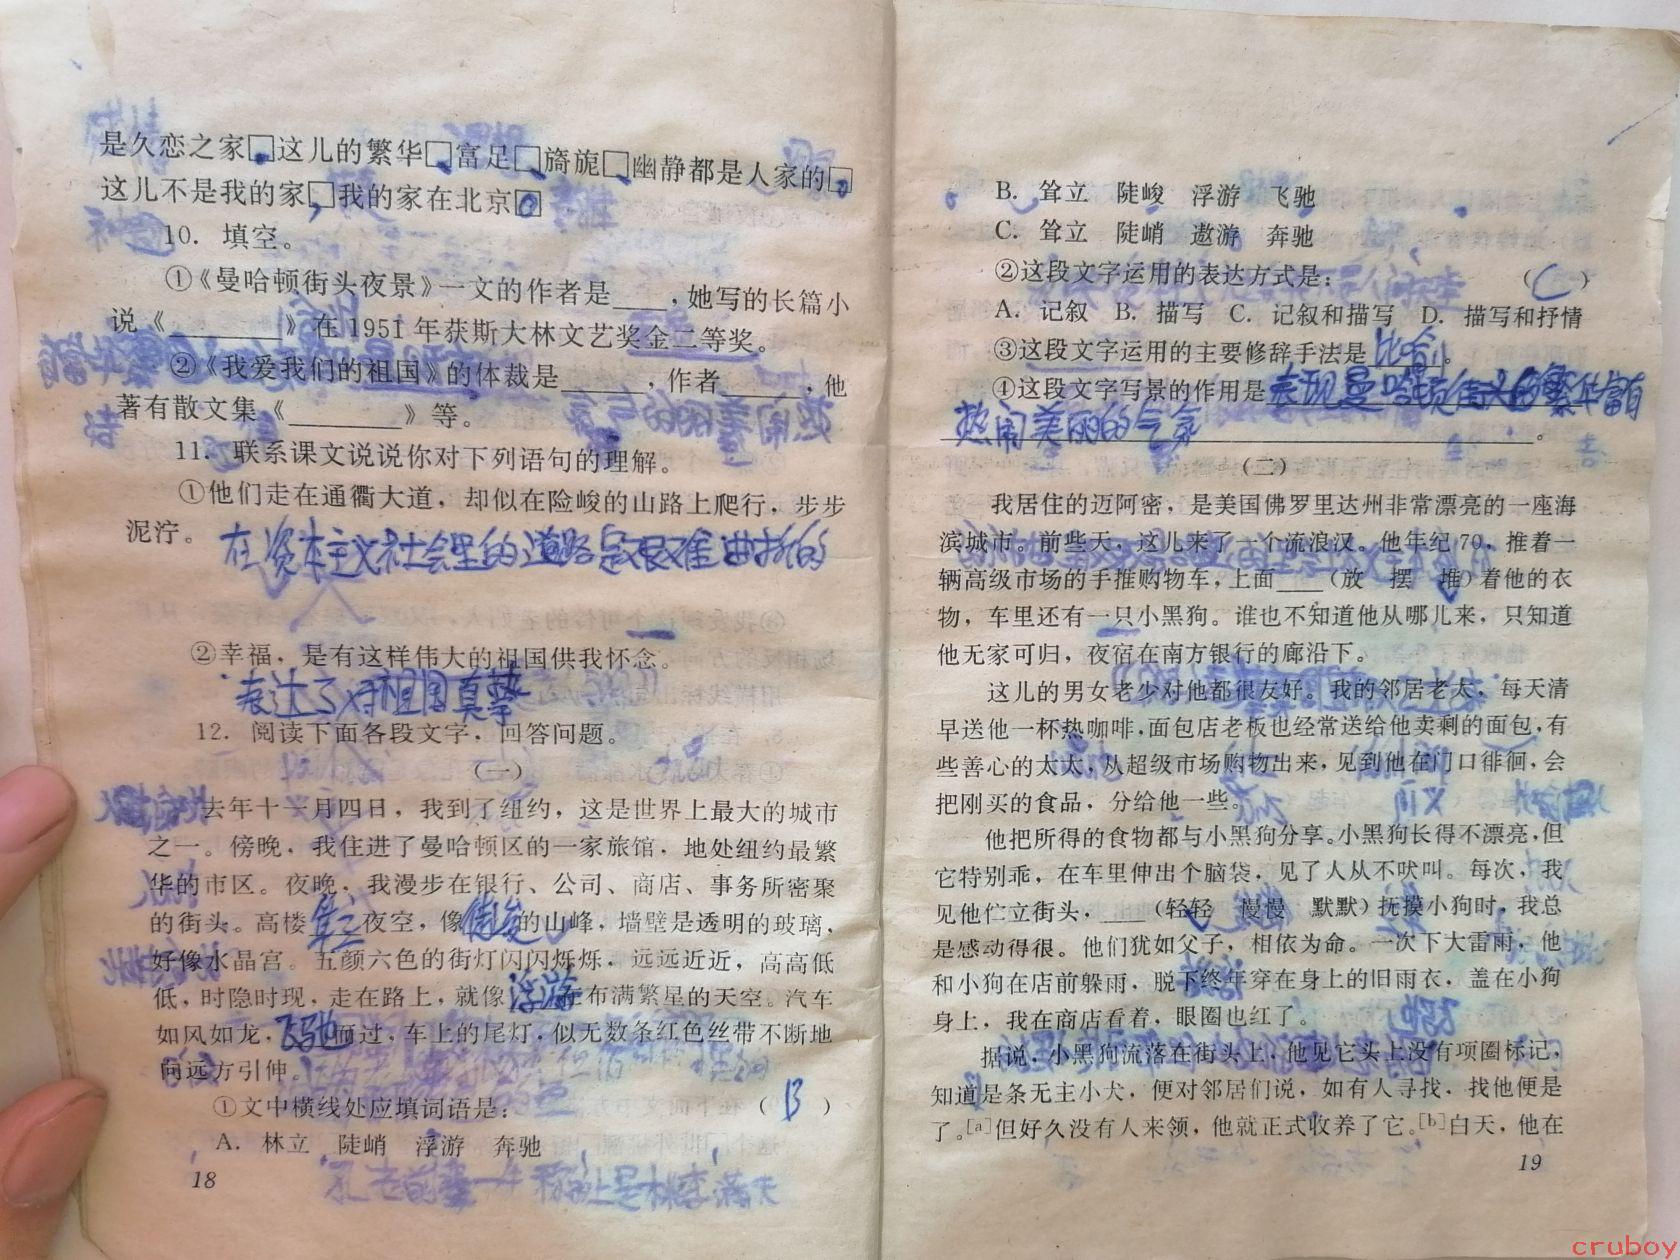 是久恋之家□、这儿的繁华□、富足□、旖旎□、幽静都是人家的□。
这儿不是我的家□，我的家在北京□。
10. 填空。
①《曼哈顿街头夜景》一文的作者是____,她写的长篇小
说《________》在1951年获斯大林文艺奖金二等奖。
②《我爱我们的祖国》的体裁是______,作者______,他
著有散文集《________》等。
11. 联系课文说说你对下列语句的理解。
①他们走在通衢大道，却似在险峻的山路上爬行，步步
泥泞。 在资本主义社会里的道路是很难曲折的
②幸福，是有这样伟大的祖国供我怀念。
表达了对祖国真挚
12. 阅读下面各段文字，回答问题。
(一)
去年十一月四日，我到了纽约，这是世界上最大的城市
之一。傍晚，我住进了曼哈顿区的一家旅馆，地处纽约最繁
华的市区。夜晚，我漫步在银行、公司、商店、事务所密聚
的街头。高楼耸立夜空，像陡峻的山峰，墙壁是透明的玻璃，
好像水晶宫。五颜六色的街灯闪闪烁烁，远远近近，高高低
低，时隐时现，走在路上，就像浮游在布满繁星的天空。汽车
如风如龙，飞驰而过，车上的尾灯，似无数条红色丝带不断地
向远方引伸。
①文中横线处应填词语是： ( B )
A. 林立 陡峭 浮游 奔驰
18
B. 耸立 陡峻 浮游 飞驰
C. 耸立 陡峭 遨游 奔驰
②这段文字运用的表达方式是： ( C )
A. 记叙 B. 描写 C. 记叙和描写 D. 描写和抒情
③这段文字运用的主要修辞手法是比喻。
④这段文字写景的作用是表现曼哈顿街头的繁华富有
热闹美丽的气氛。
(二)
我居住的迈阿密，是美国佛罗里达州非常漂亮的一座海
滨城市。前些天，这儿来了一个流浪汉。他年纪70，推着一
辆高级市场的手推购物车，上面____(放 摆 堆)着他的衣
物，车里还有一只小黑狗。谁也不知道他从哪儿来，只知道
他无家可归，夜宿在南方银行的廊沿下。
这儿的男女老少对他都很友好。我的邻居老太，每天清
早送他一杯热咖啡，面包店老板也经常送给他卖剩的面包，有
些善心的太太，从超级市场购物出来，见到他在门口徘徊，会
把刚买的食品，分给他一些。
他把所得的食物都与小黑狗分享。小黑狗长得不漂亮，但
它特别乖，在车里伸出个脑袋，见了人从不吠叫。每次，我
见他伫立街头，____(轻轻 慢慢 默默)抚摸小狗时，我总
是感动得很。他们犹如父子，相依为命。一次下大雷雨，他
和小狗在店前躲雨，脱下终年穿在身上的旧雨衣，盖在小狗
身上，我在商店看着，眼圈也红了。
据说，小黑狗流落在街头上，他见它头上没有项圈标记，
知道是条无主小犬，便对邻居们说，如有人寻找，找他便是
了。[a]但好久没有人来领，他就正式收养了它。[b]白天，他在
19
cruboy